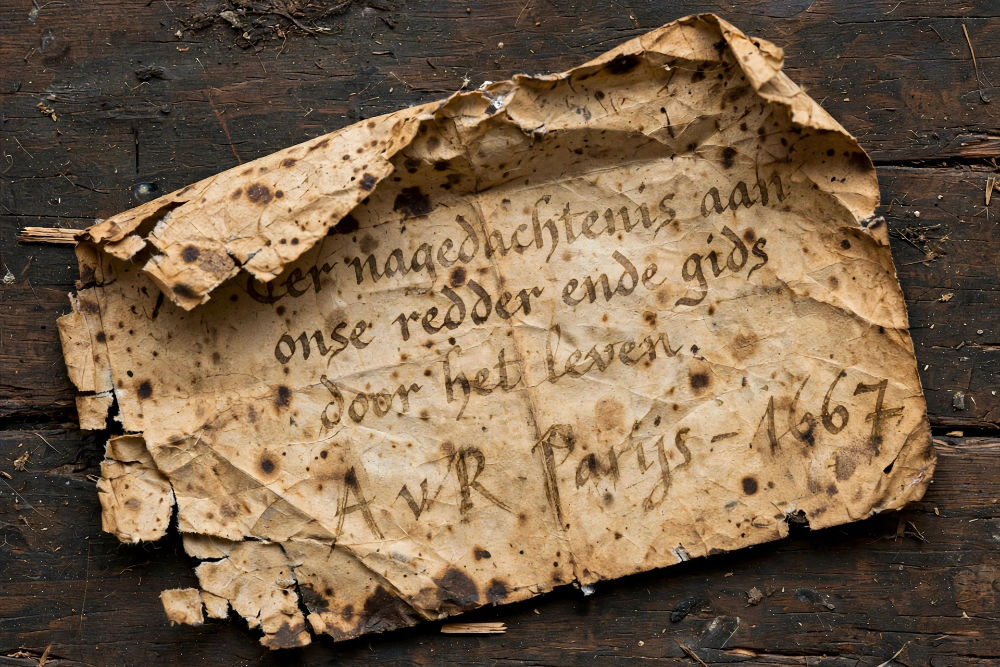 Ter nagedachtenis aan
onse redder ende gids
door het leven.
A v R Parijs - 1667